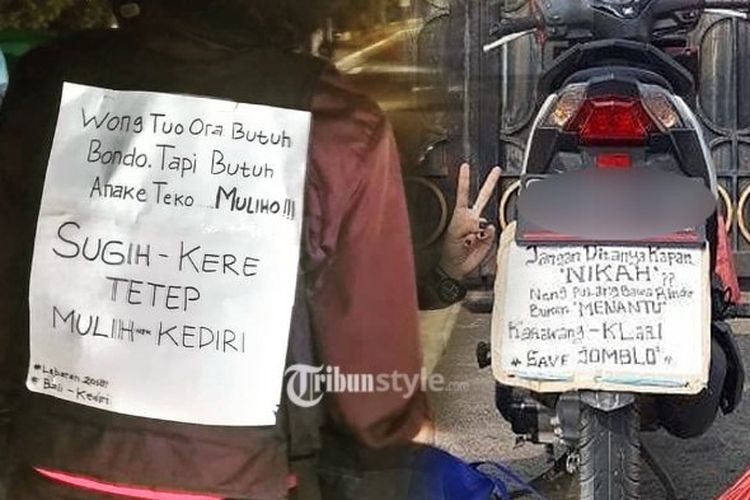 Wong Tuo Ora Butuh
Bondo. Tapi Butuh
Anake Teko ... MULIHO!!!
SUGIH - KERE
TETEP
MULIH KEDIRI
# Lebaran
# Bali - Kediri
Tribunstyle.com
Jangan Ditanya Kapan
"NIKAH"??
Neng Pulang Bawa Rindu
Bukan "MENANTU"
Karawang - KLARI
"SAVE JOMBLO"